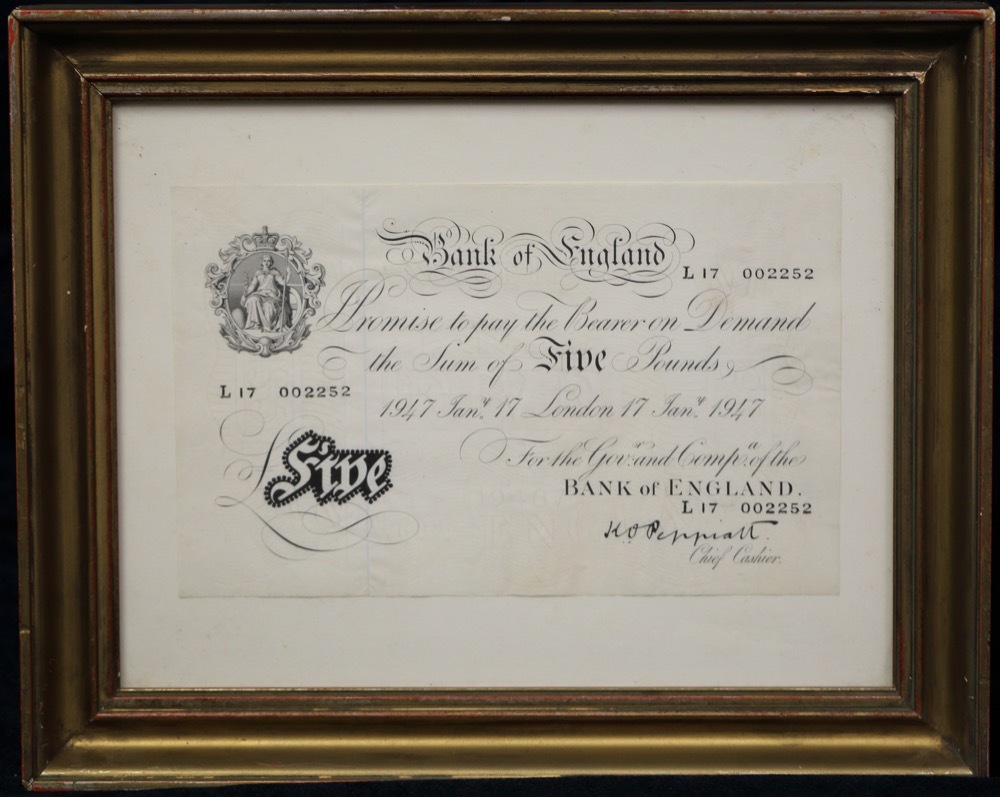 Bank of England
L 17 002252
I Promise to pay the Bearer on Demand
the Sum of Five Pounds
L 17 002252
1947 Jany. 17 London 17 Jany. 1947
£Five
For the Govr. and Compa. of the
BANK of ENGLAND.
L 17 002252
K O Peppiatt.
Chief Cashier.